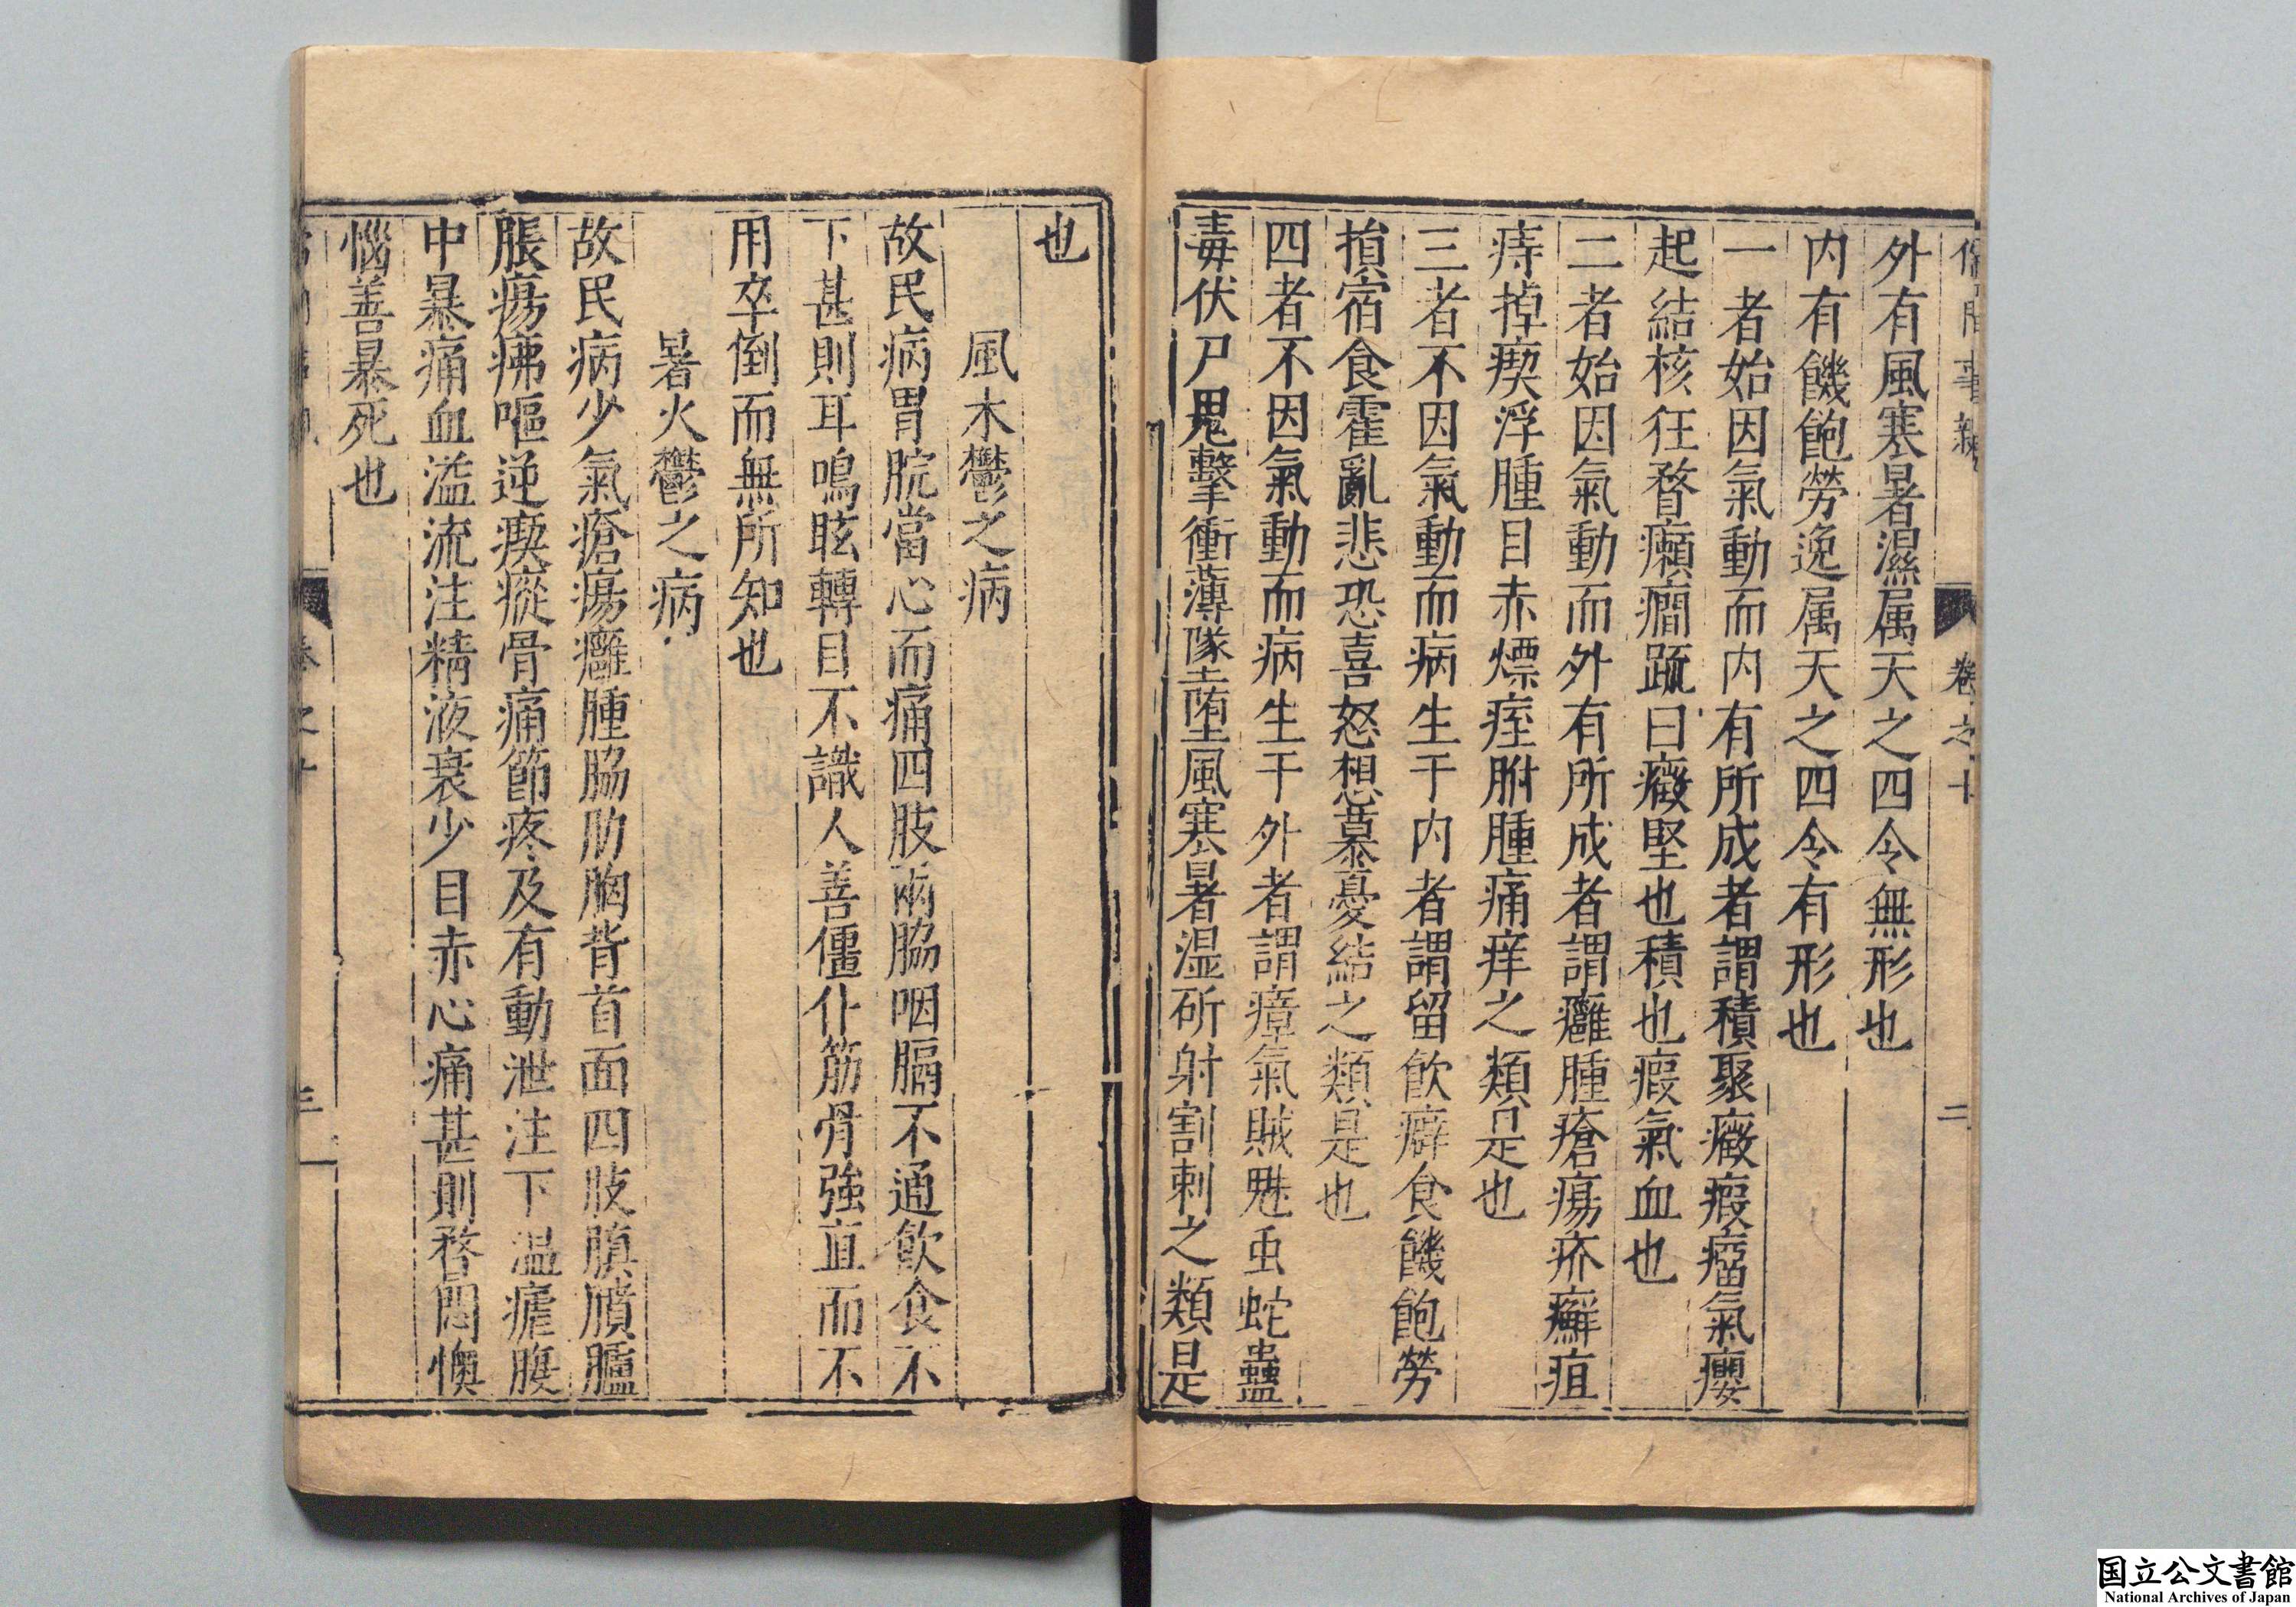 外有風寒暑濕属天之四令無形也
内有饑飽勞逸属天之四令有形也
一者始因氣動而内有所成者謂積聚癥瘕瘤氣癭
起結核狂瞀癲癇䟽曰癥堅也積也瘕氣血也
二者始因氣動而外有所成者謂癰腫瘡瘍疥癬疽
痔掉瘈浮腫目赤熛痓胕腫痛痒之類是也
三者不因氣動而病生于内者謂留飲癖食饑飽勞
損宿食霍亂悲恐喜怒想慕憂結之類是也
四者不因氣動而病生于外者謂瘴氣賊魅虫蛇蠱
毒伏尸鬼擊衝薄墜堕風寒暑湿斫射割刺之類是
卷之十
二
也
風木鬱之病
故民病胃脘當心而痛四肢兩脇咽膈不通飲食不
下甚則耳鳴眩轉目不識人善僵仆筋骨強直而不
用卒倒而無所知也
暑火鬱之病
故民病少氣瘡瘍癰腫脇肋胸背首面四肢䐜膹臚
脹瘍疿嘔逆瘈瘲骨痛節疼及有動泄注下温瘧腹
中暴痛血溢流注精液衰少目赤心痛甚則瞀悶懊
惱善暴死也
三
国立公文書館
National Archives of Japan